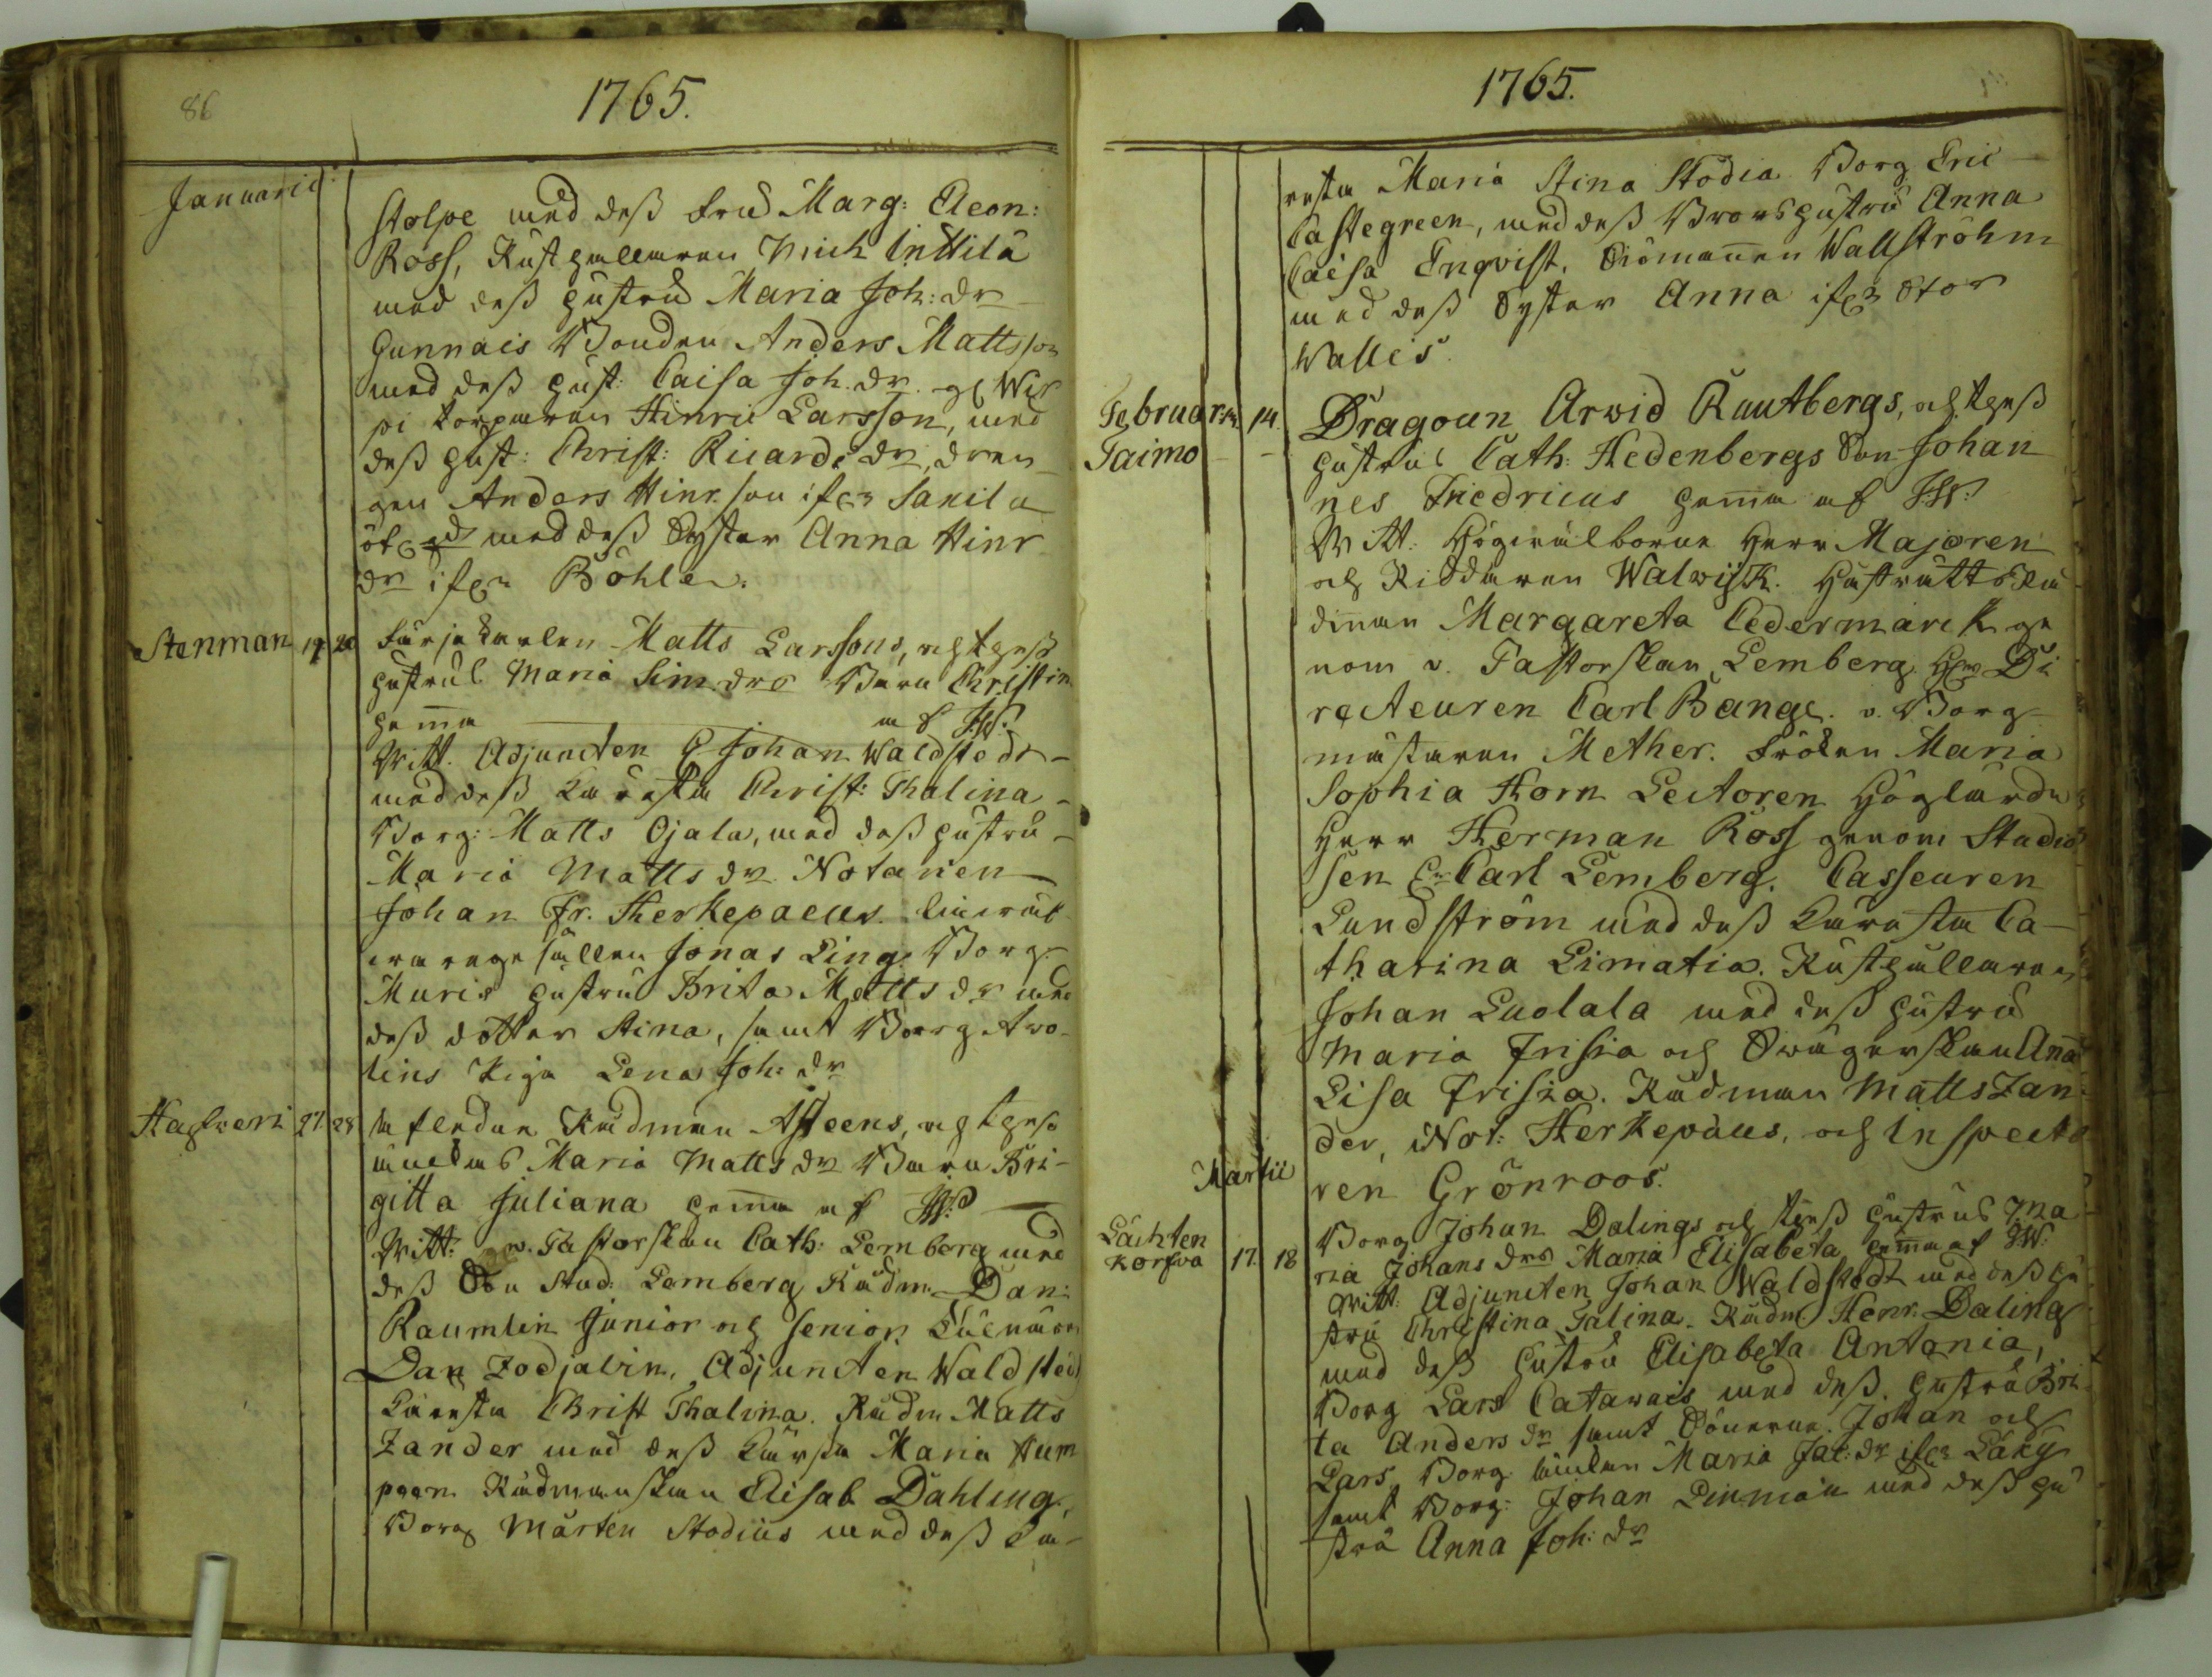 86
1765.
Januarii
Stolpe med deß fru Marg: Eleon:
Ross, Rusthållaren Mich Inttilä
med deß hustru Maria Joh: dr
Gunnais Bonden Anders Mattsson
med deß hust: Caisa Joh. dr. och Wir
pi torparen Hinric Larsson, med
deß hust: Christ: Ricards dr, dren
gen Anders Hinr.son ifrån Sanila
med deß Syster Anna Hinr
dr ifrån Böhle.
Stenman 19 20 Färjekarlen Matts Larssons, och thess
hustrus Maria Sim. drs Barn Christin
hemma af JW:
Witt. Adjuncten H Johan Waldstedt
med deß Käresta Christ: Thalina
Borg: Matts Ojala, med deß hustru
Maria Matts dr Notarien
Johan Fr. Herkepaeus. Linwäf
waregesällen Jonas Ling. Borg
Muris hustru Brita Matts dr med
deß dotter Stina, samt Borg Awo
lins Piga Lena Joh: dr
Hagfveri 27. 28 afledne Rådman Asteens, och thess
änckas Maria Matts dr Barn Bri-
gitta Juliana hemma af JW:
Witt: v. Pastorskan Cath: Lemberg med
deß Son Stud: Lemberg Rådm Dan:
Raumlin junior och senior Länsman
Dan Zodjalin, Adjuncten Waldsted
Käresta Christ Thalina. Rådm Matts
Zander med deß Kärsta Maria Hum
peen Rådmanskan Elisab Dahling,
Borg Mårten Stodius med deß Kä-
1765.
resta Maria Stina Stodia Borg Eric
Castegreen, med deß Brors hustru Anna
Caisa Enqvist, Siömannen Wallströhm
med deß Syster Anna ifrån Stor
Walleis.
Februarii 14. Dragoun Arvid Rautbergs, och thess
Taimo hustrus Cath: Hedenbergs Son Johan
nes Friedricus hemma af JW:
Witt: Högwälborne Herr Majoren
och Riddaren Walwijk. Häradtskri
Margareta Cedermarck ge
nom v. Pastorskan Lemberg. Herr Di
recteuren Carl Bange. v. Borg
mästaren Mether. Fröken Maria
Sophia Horn Lectoren Höglärde
Herr Herman Ross genom Studio
sen Hr Carl Lemberg. Casseuren
Lundström med deß Käresta Ca-
tharina Limatia. Rusthållaren
Johan Luolala med deß hustru
Maria Frisia och Swägerskan Anna
Lisa Frisia. Rådman Matts Zan
der, Not: Herkepaeus, och Inspecto
ren Grönroos.
Martii
Lächten Borg Johan Dalings och thess hustrus Ma
korfva 17. 18 ria Johans drs Maria Elisabeta hemma af JW:
Witt: Adjuncten Johan Waldstedt med deß hu
stru Christina Talina. Rådm: Henr. Daling
med deß hustru Elisabeta Antonia,
Borg Lars Catawais med deß hustru Bri
ta Anders dr samt Sönerne Johan och
Lars, Borg änckan Maria Jac: dr ifrån Läky
samt Borg: Johan Linman med deß hu
stru Anna Joh: dr